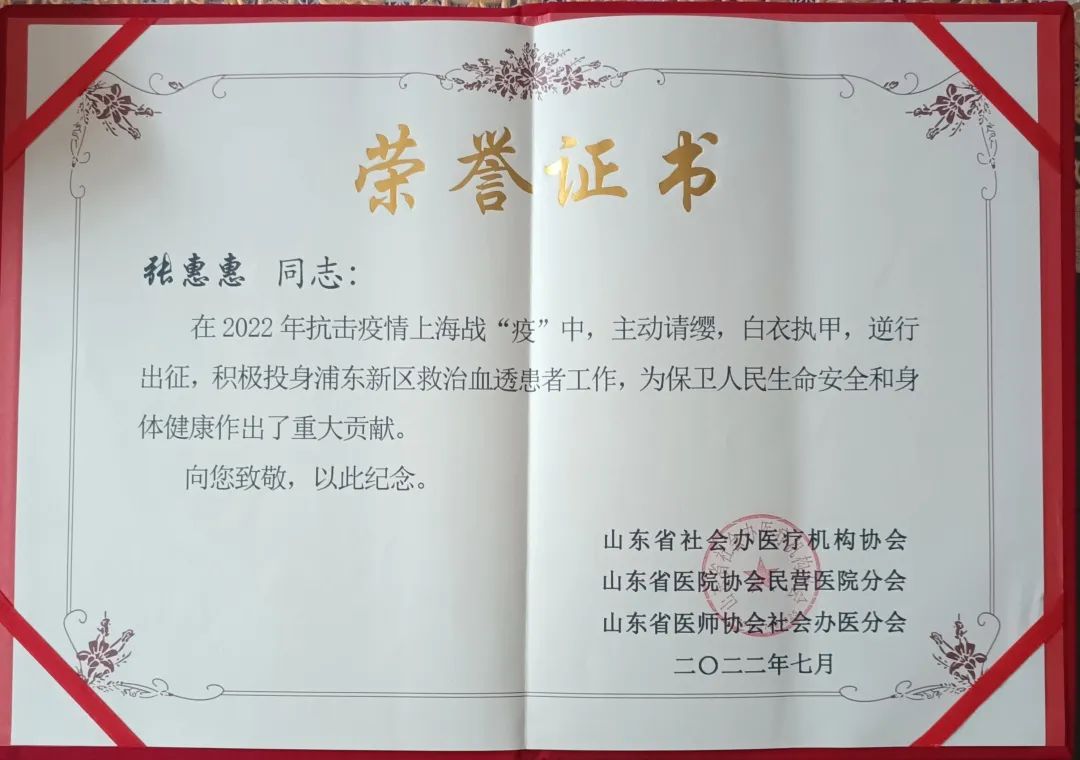 荣誉证书
张惠惠 同志：
在2022年抗击疫情上海战“疫”中，主动请缨，白衣执甲，逆行
出征，积极投身浦东新区救治血透患者工作，为保卫人民生命安全和身
体健康作出了重大贡献。
向您致敬，以此纪念。
山东省社会办医疗机构协会
山东省医院协会民营医院分会
山东省医师协会社会办医分会
二〇二二年七月